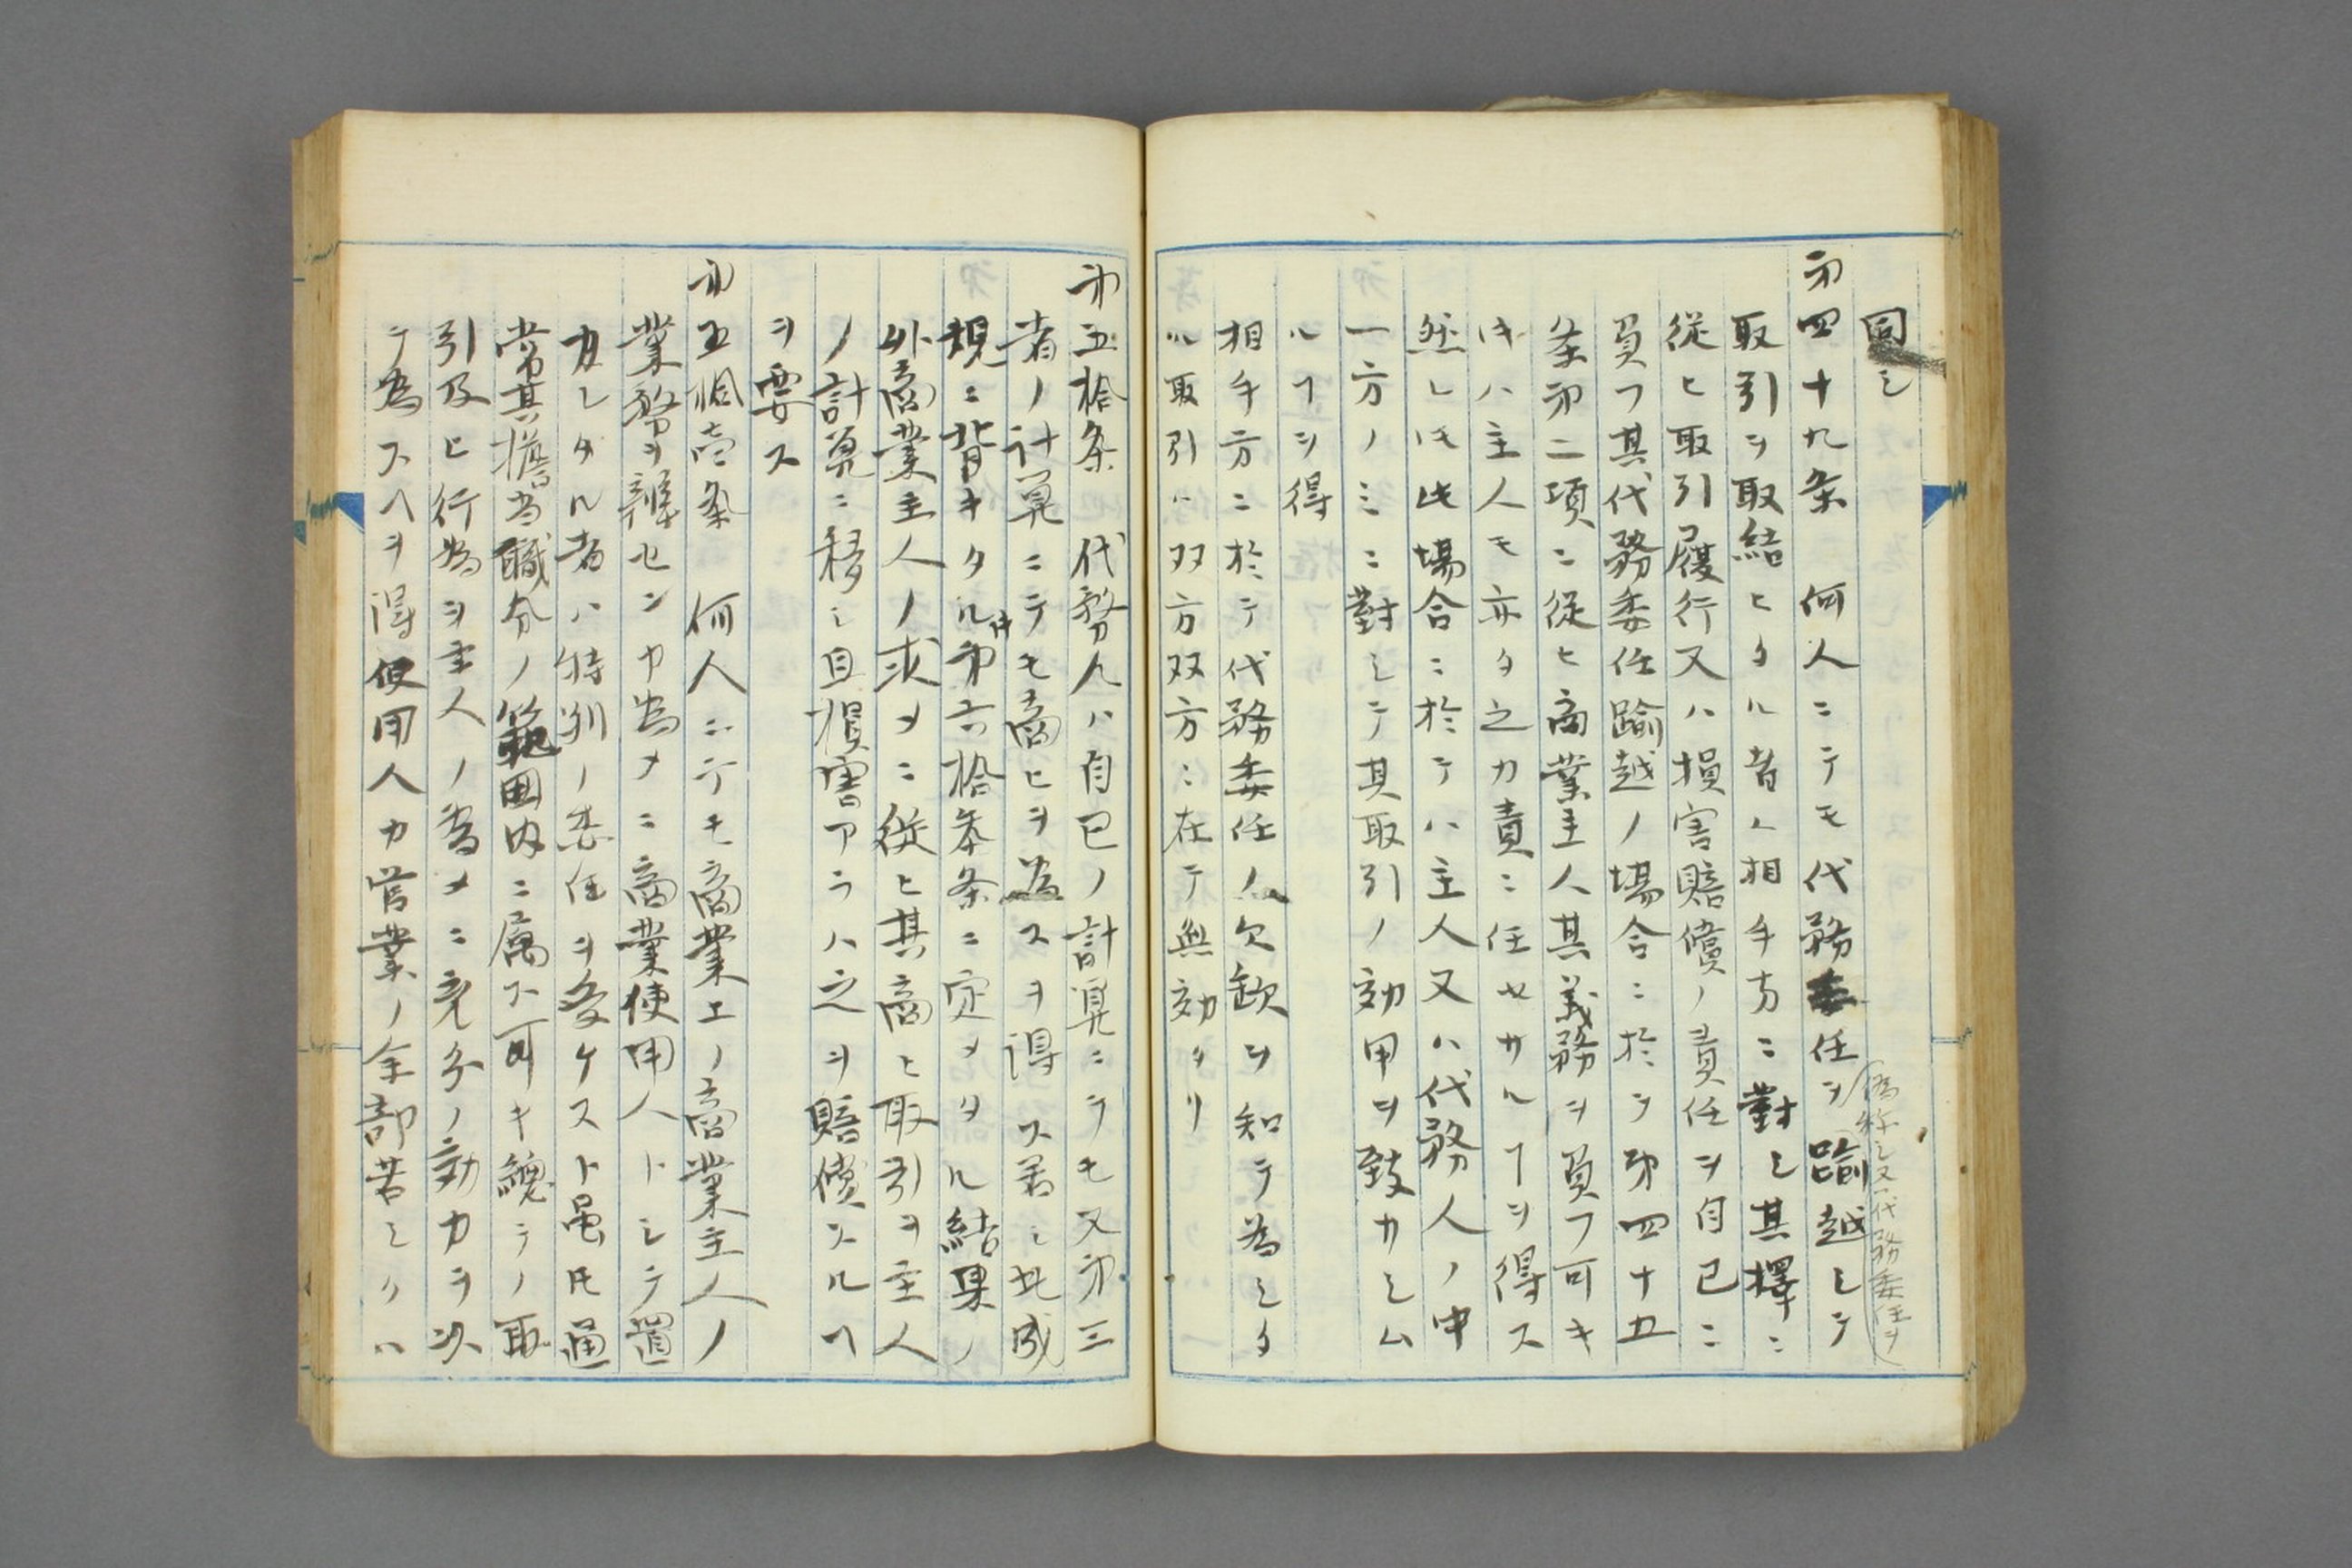 同シ
第四十九条　何人ニテモ代務委任ヲ踰越シテ
（偽称シ又代務委任ヲ）
取引ヲ取結ヒタル者ハ相手方ニ對シ其擇ニ
従ヒ取引履行又ハ損害賠償ノ責任ヲ自己ニ
負フ其代務委任踰越ノ場合ニ於テ第四十五
条第二項ニ従ヒ商業主人其義務ヲ負フ可キ
𪜈ハ主人モ亦タ之カ責ニ任セサルヿヲ得ス
然レ𪜈此場合ニ於テハ主人又ハ代務人ノ中
一方ノミニ對シテ其取引ノ効用ヲ致カシム
ルヿヲ得
相手方ニ於テ代務委任ノ欠缺ヲ知テ為シタ
ル取引ハ双方双方ニ在テ無効タリ
第五拾条　代務人ハ自己ノ計算ニテモ又第三
者ノ計算ニテモ商ヒヲ為スヲ得ス若シ此成
規ニ背キタル𪜈第六拾条条ニ定メタル結果ノ
外商業主人ノ求メニ従ヒ其商ヒ取引ヲ主人
ノ計算ニ移シ且損害アラハ之ヲ賠償スルヿ
ヲ要ス
第五拾壱条　何人ニテモ商業上ノ商業主人ノ
業務ヲ辨センカ為メニ商業使用人トシテ置
カレタル者ハ特別ノ委任ヲ受ケスト虽𪜈通
常其擔当職分ノ範囲内ニ属ス可キ總テノ取
引及ヒ行為ヲ主人ノ為メニ充分ノ効力ヲ以
テ為スヿヲ得使用人カ営業ノ全部若シクハ